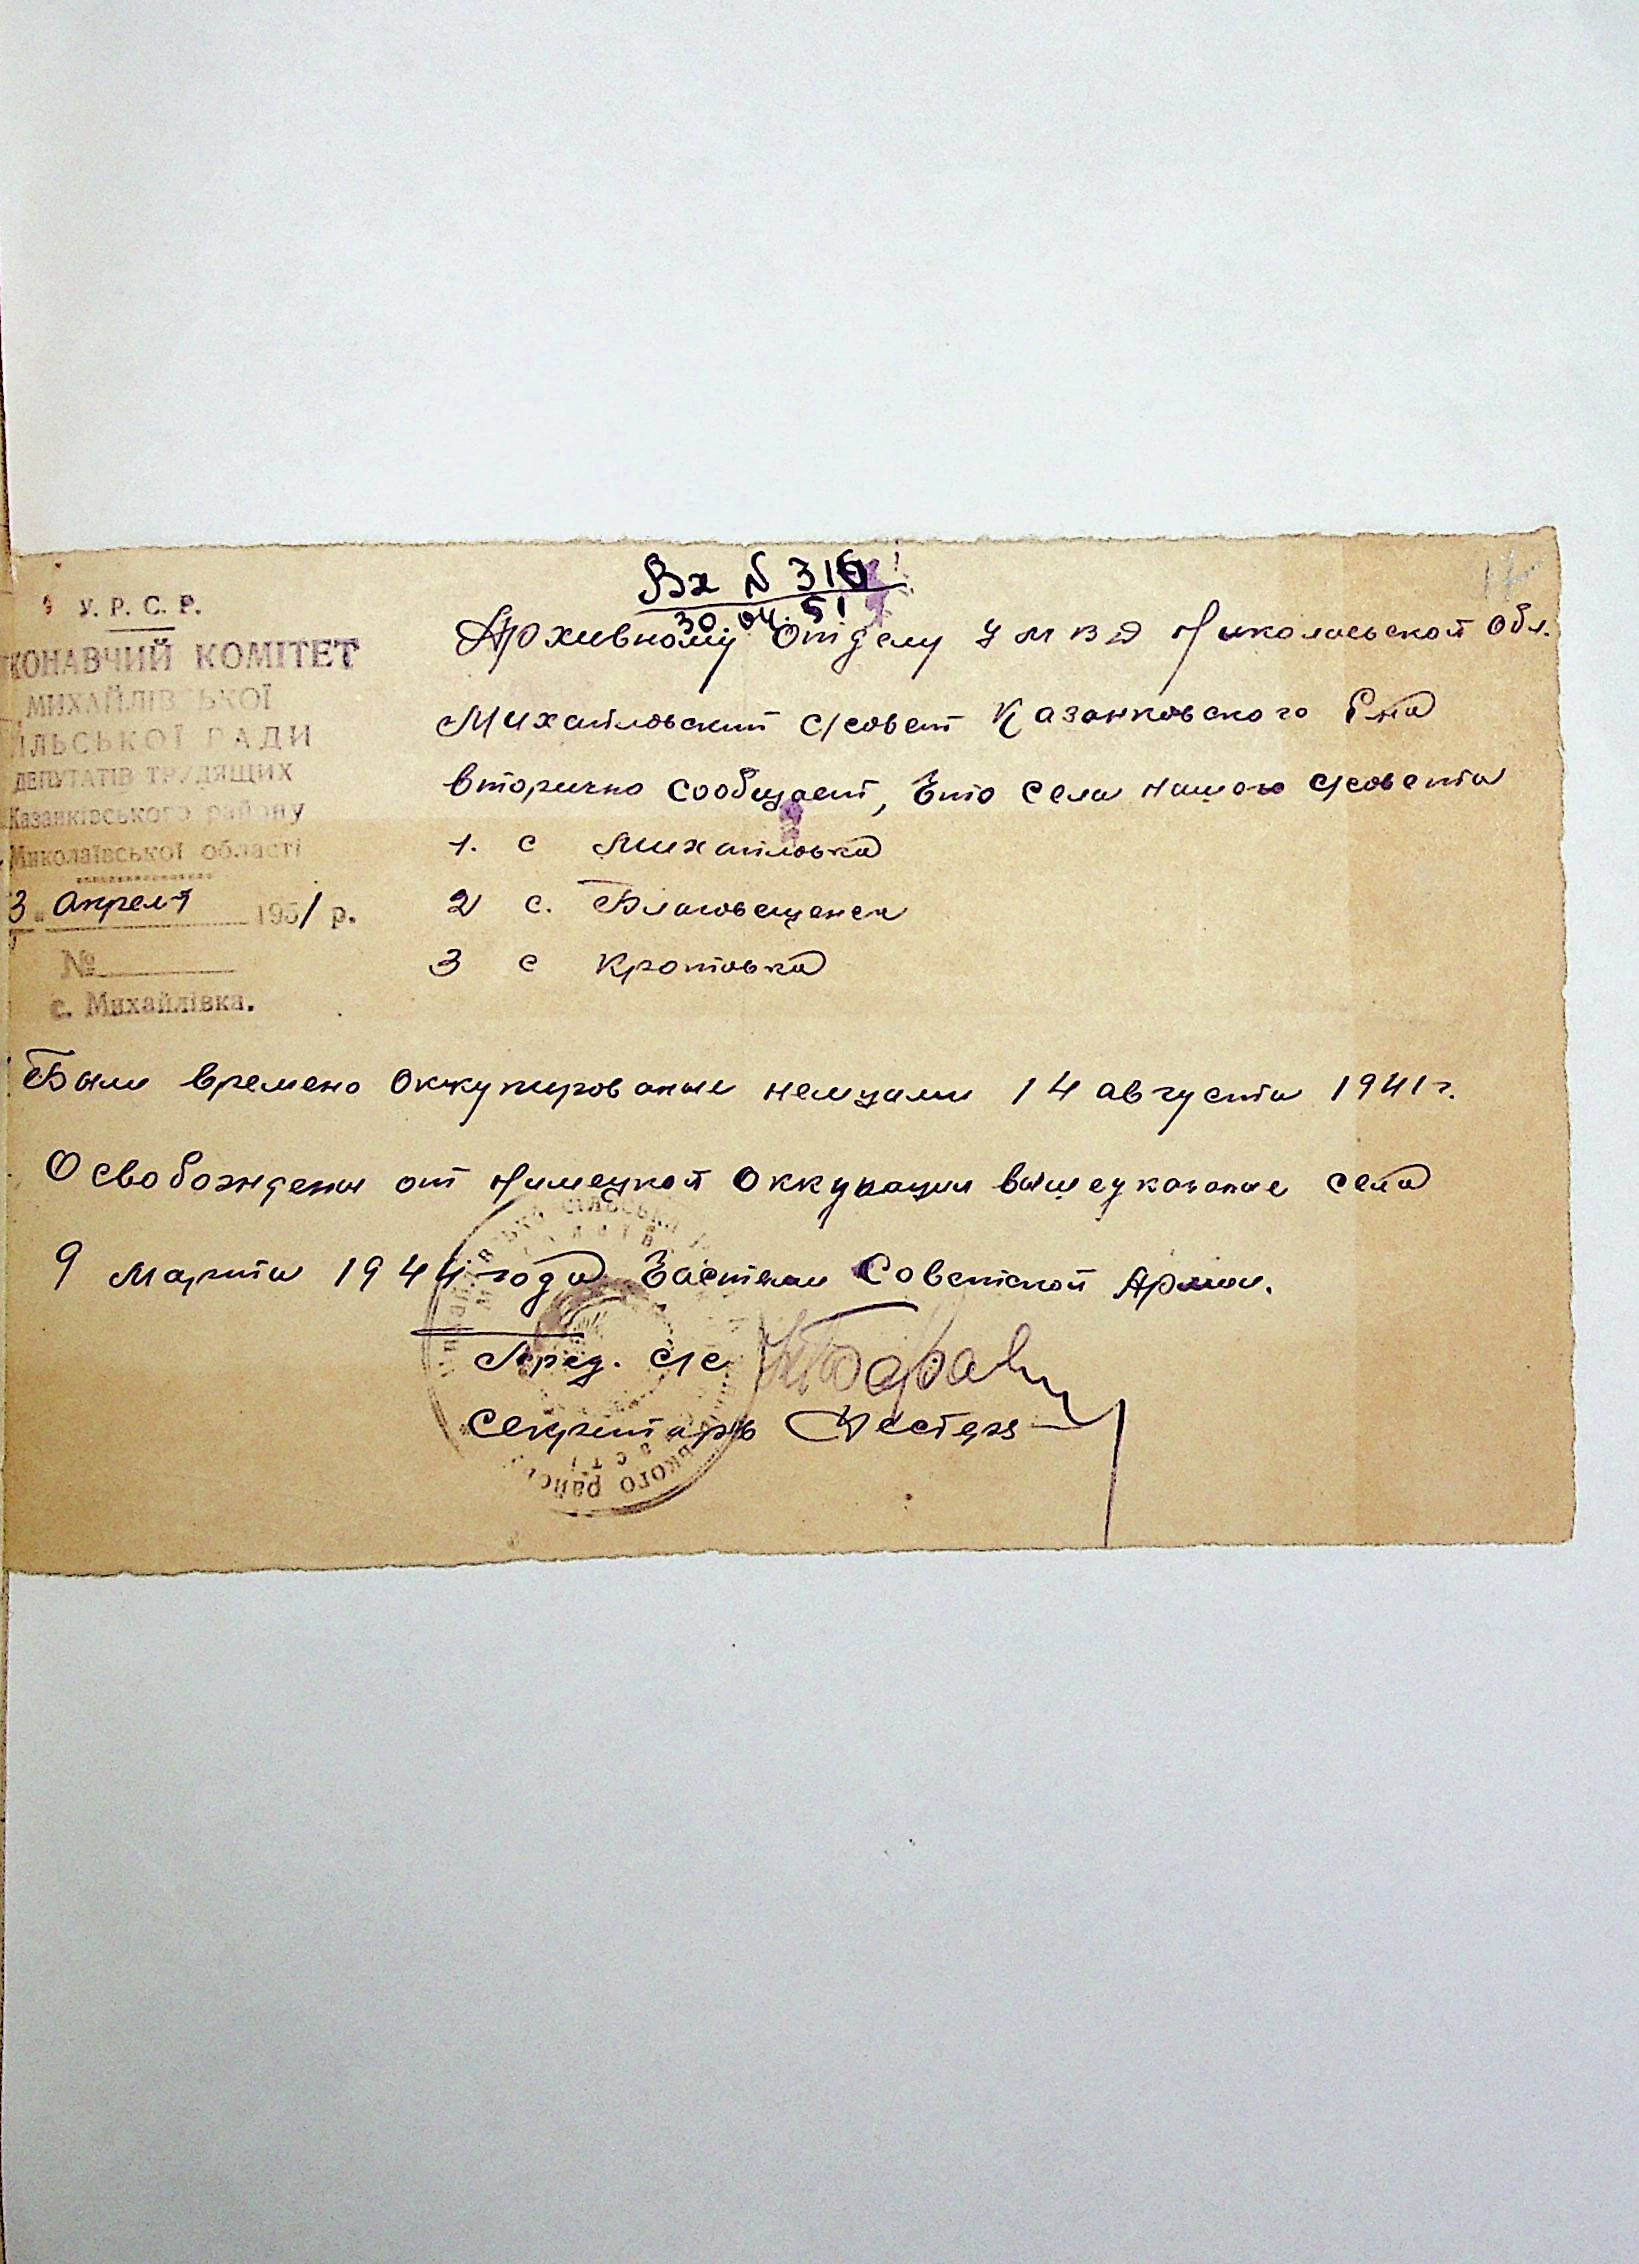 Вх N 316
30 04. 51
17
У. Р. С. Р.
КОНАВЧИЙ КОМІТЕТ
МИХАЙЛІВСЬКОЇ
ІЛЬСЬКОЇ РАДИ
ДЕПУТАТІВ ТРУДЯЩИХ
Казанківського району
Миколаївської області
3 " апреля 1951 р.
№
с. Михайлівка.
Архивному Отделу УМВД Николаевской Обл.
Михайловский с/совет Казанковского Р-на
вторично сообщает, что села нашого с/совета
1. с Михайловка
2 с. Благовещенск
3 с Кротовка
Были времено Оккупированые немцами 14 августа 1941 г.
Освобождены от Нимецкой Оккупации вышеуказаные села
9 Марта 1944 года Частями Советской Армии.
Пред. с/с
Секретарь